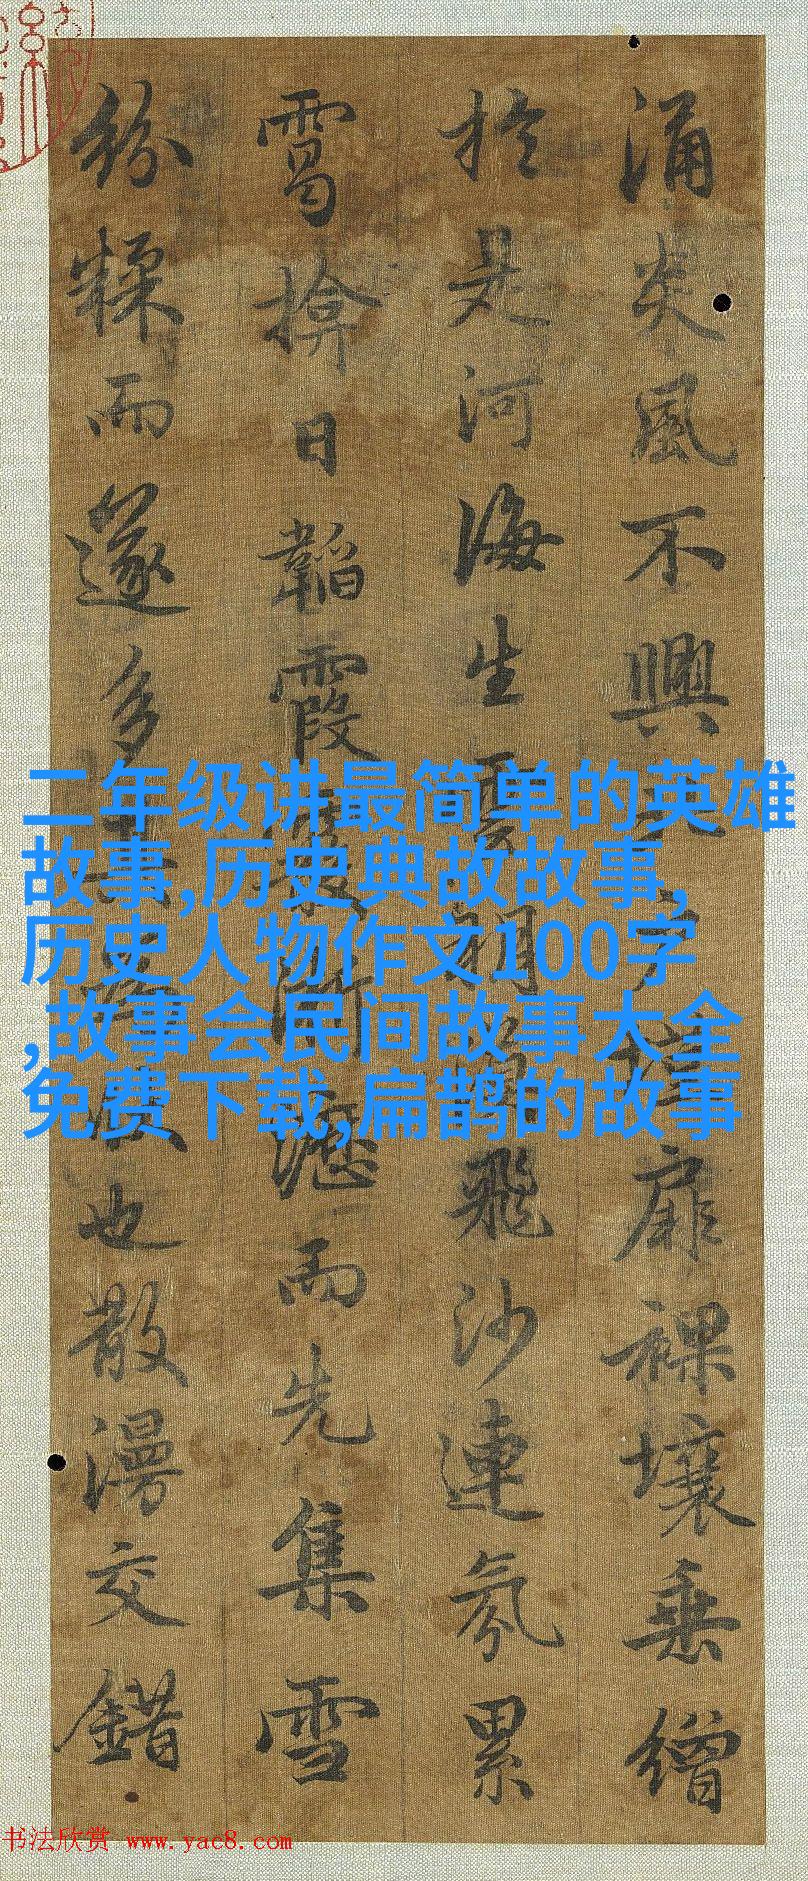 涌炎風不興扉裸壤垂繒
於是河海生飛沙連氛累
靄揜日韜霞淅瀝而先集雪
紛糅而遂多也散漫交錯
二年级讲最简单的英雄
故事,历史典故故事,
历史人物作文100字
,故事会民间故事大全
免费下载,扁鹊的故事
书法欣赏 www.yac8.com